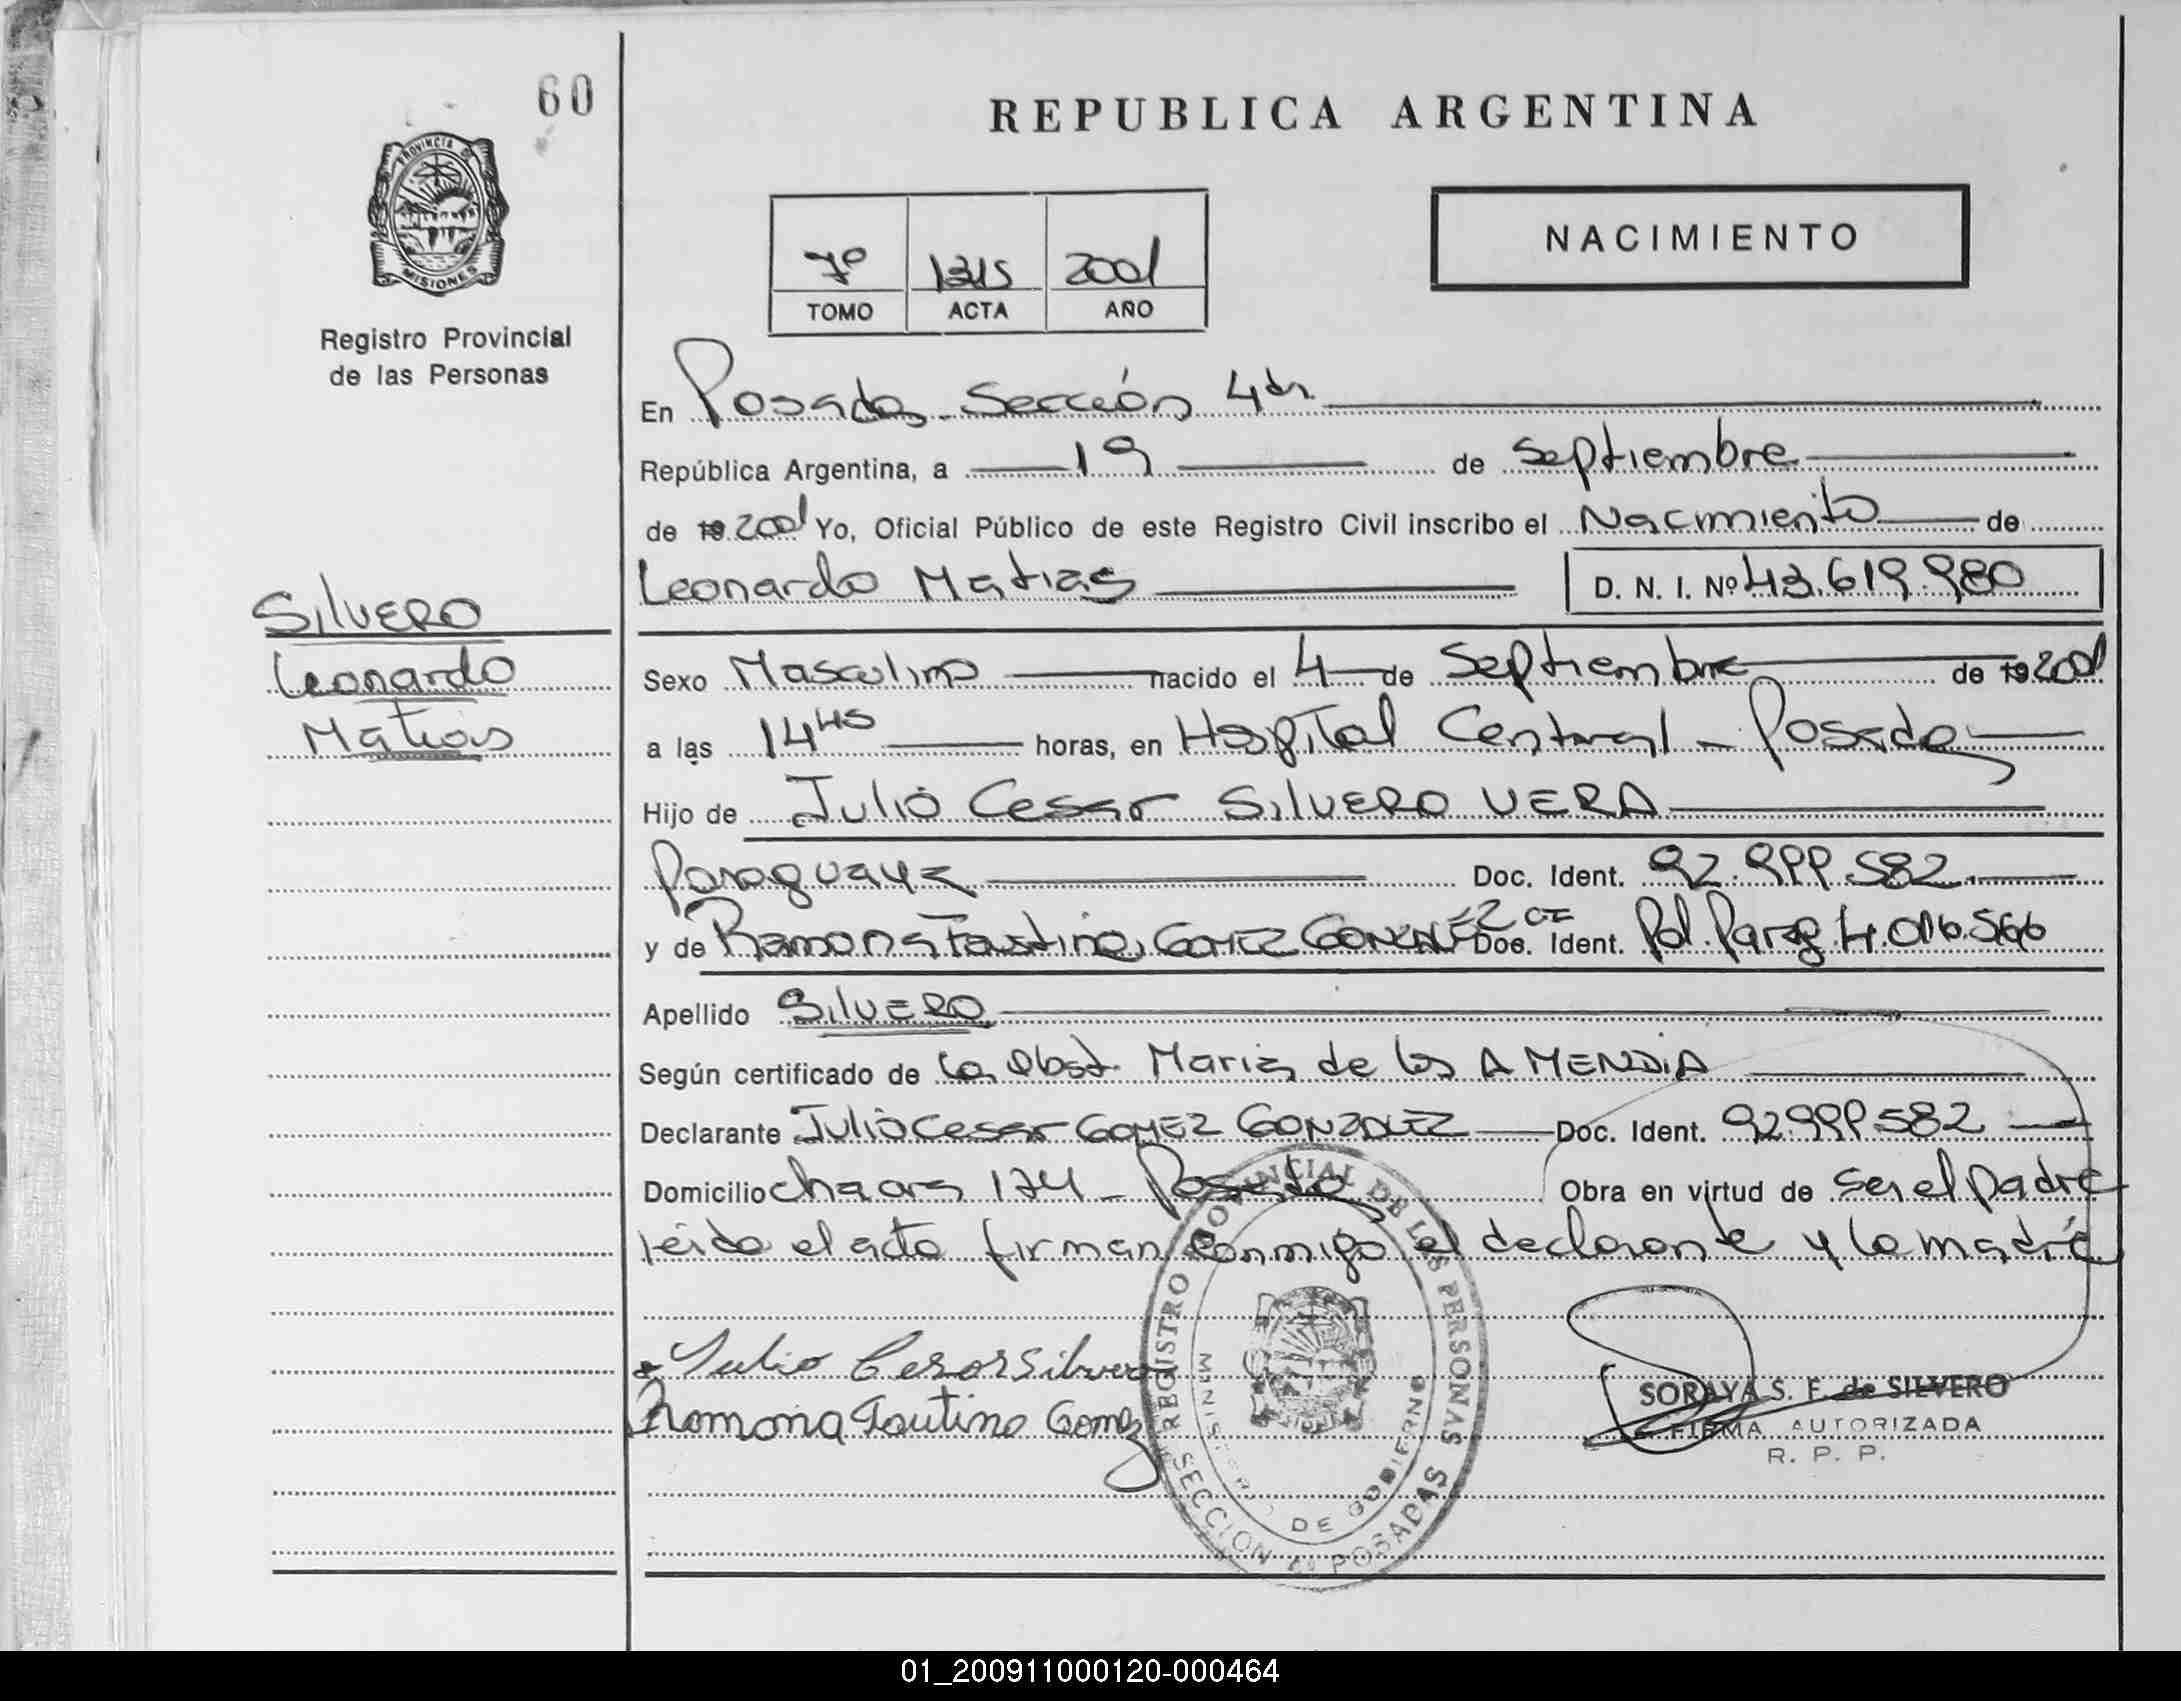 60
REPUBLICA ARGENTINA
PROVINCIA DE
MISIONES
Registro Provincial
de las Personas
NACIMIENTO
7º 1315 2001
TOMO ACTA AÑO
En Posadas Sección 4ta
República Argentina, a 19 de Septiembre
de 19 2001 Yo, Oficial Público de este Registro Civil inscribo el Nacimiento de
Leonardo Matias D. N. I. Nº 43.619.980
SILVERO
Leonardo
Matias
Sexo Masculino nacido el 4 de Septiembre de 19 2001
a las 14 45 horas, en Hospital Central - Posadas
Hijo de Julio Cesar SILVERO VERA
Paraguaya Doc. Ident. 92.999.582
y de Ramona Faustina GOMEZ GONZALEZ CI Doc. Ident. Pol. Parag 4.016.566
Apellido SILVERO
Según certificado de la Obst. Maria de los A MENDIA
Declarante Julio Cesar GOMEZ GONZALEZ Doc. Ident. 92.999.582
Domicilio chacra 174 - Posadas Obra en virtud de ser el padre
leida el acta firman conmigo el declarante y la madre
Julio Cesar Silvero
Ramona Fautina Gomez
REGISTRO PROVINCIAL DE LAS PERSONAS
MINISTERIO DE GOBIERNO
SECCION 4ª POSADAS
SORAYA S. F. de SILVERO
FIRMA AUTORIZADA
R. P. P.
01_200911000120-000464